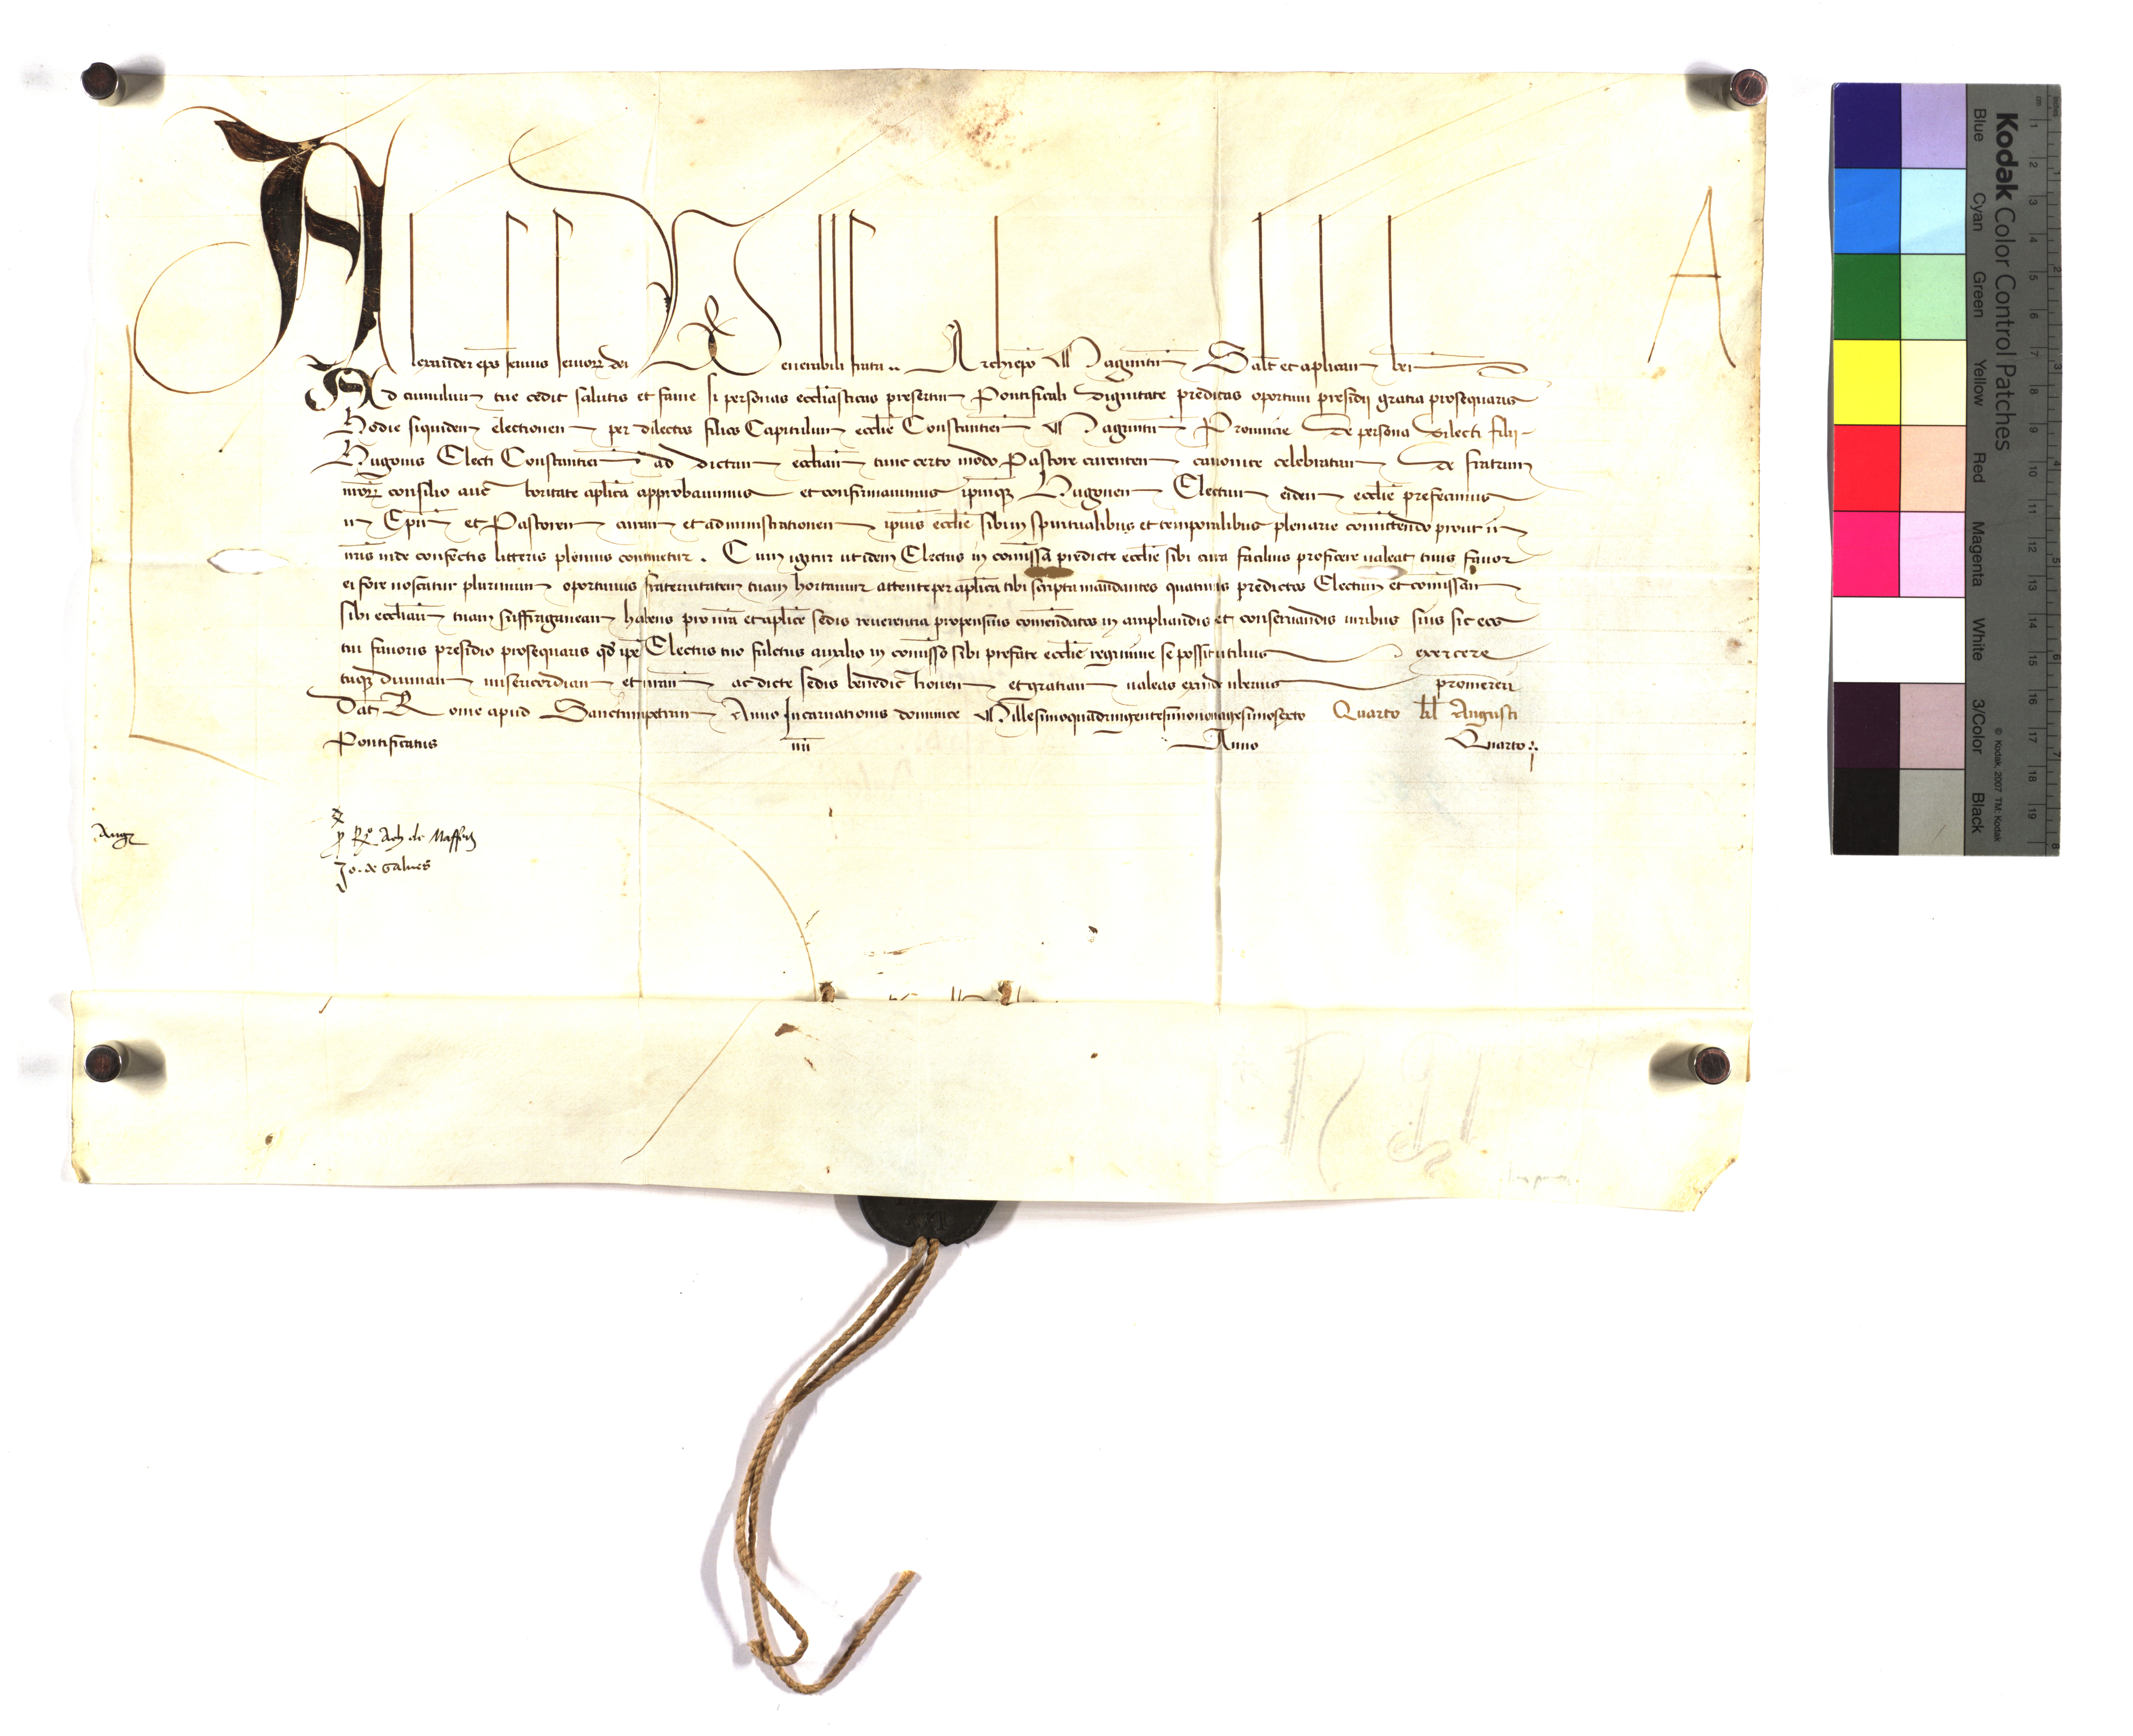 Alexander eps seruus seruorz dei Venerabili fratri .. Archiepo Maguntin Salt et aplicam ben
Ad cumulum tue cedit salutis et fame si personas ecclesiasticas presertim Pontificali dignitate preditas oportuni presidij gratia prosequaris
Hodie siquidem electionem per dilectos filios Capitulum ecclie Constantien Maguntin Prouincie de persona dilecti filij
Hugonis Electi Constantien ad dictam eccliam tunc certo modo Pastore carentem canonice celebratam de fratrum
nrorz consilio auc toritate aplica approbauimus et confirmauimus ipmqz Hugonem Electum eidem ecclie prefecimus
in Epm et Pastorem curam et administrationem ipius ecclie sibi in spiritualibus et temporalibus plenarie comittendo prout in
nris inde confectis litteris plenius continetur . Cum igitur ut idem Electus in comissa predicte ecclie sibi cura facilius proficere ualeat tuus fauor
ei fore noscatur plurimum oportunus fraternitatem tuam hortamur attente per aplica tibi scripta mandantes quatinus predictos Electum et comissam
sibi eccliam tuam suffraganeam habens pro nra et aplice sedis reuerentia propensius comendatos in ampliandis et conseruandis iuribus suis sic eos
tui fauoris presidio prosequaris qd ipe Electus tuo fultus auxilio in comisso sibi prefate ecclie regimine se possit utilius exercere
tuqz diuinam misericordiam et nram ac dicte sedis benedic tionem et gratiam ualeas exinde uberius promereri
Dat Rome apud Sanctumpetrum Anno Incarnationis dominice Millesimoquadringentesimononagesimosexto Quarto kl Augusti
Pontificatus nri Anno Quarto :.
A
Aug
x
p Ro Ach de Maffeis
Jo. de Galues
Kodak Color Control Patches
Blue Cyan Green Yellow Red Magenta White 3/Color Black
© Kodak, 2007 TM: Kodak
cm 1 2 3 4 5 6 7 8 9 10 11 12 13 14 15 16 17 18 19
inches 1 2 3 4 5 6 7 8